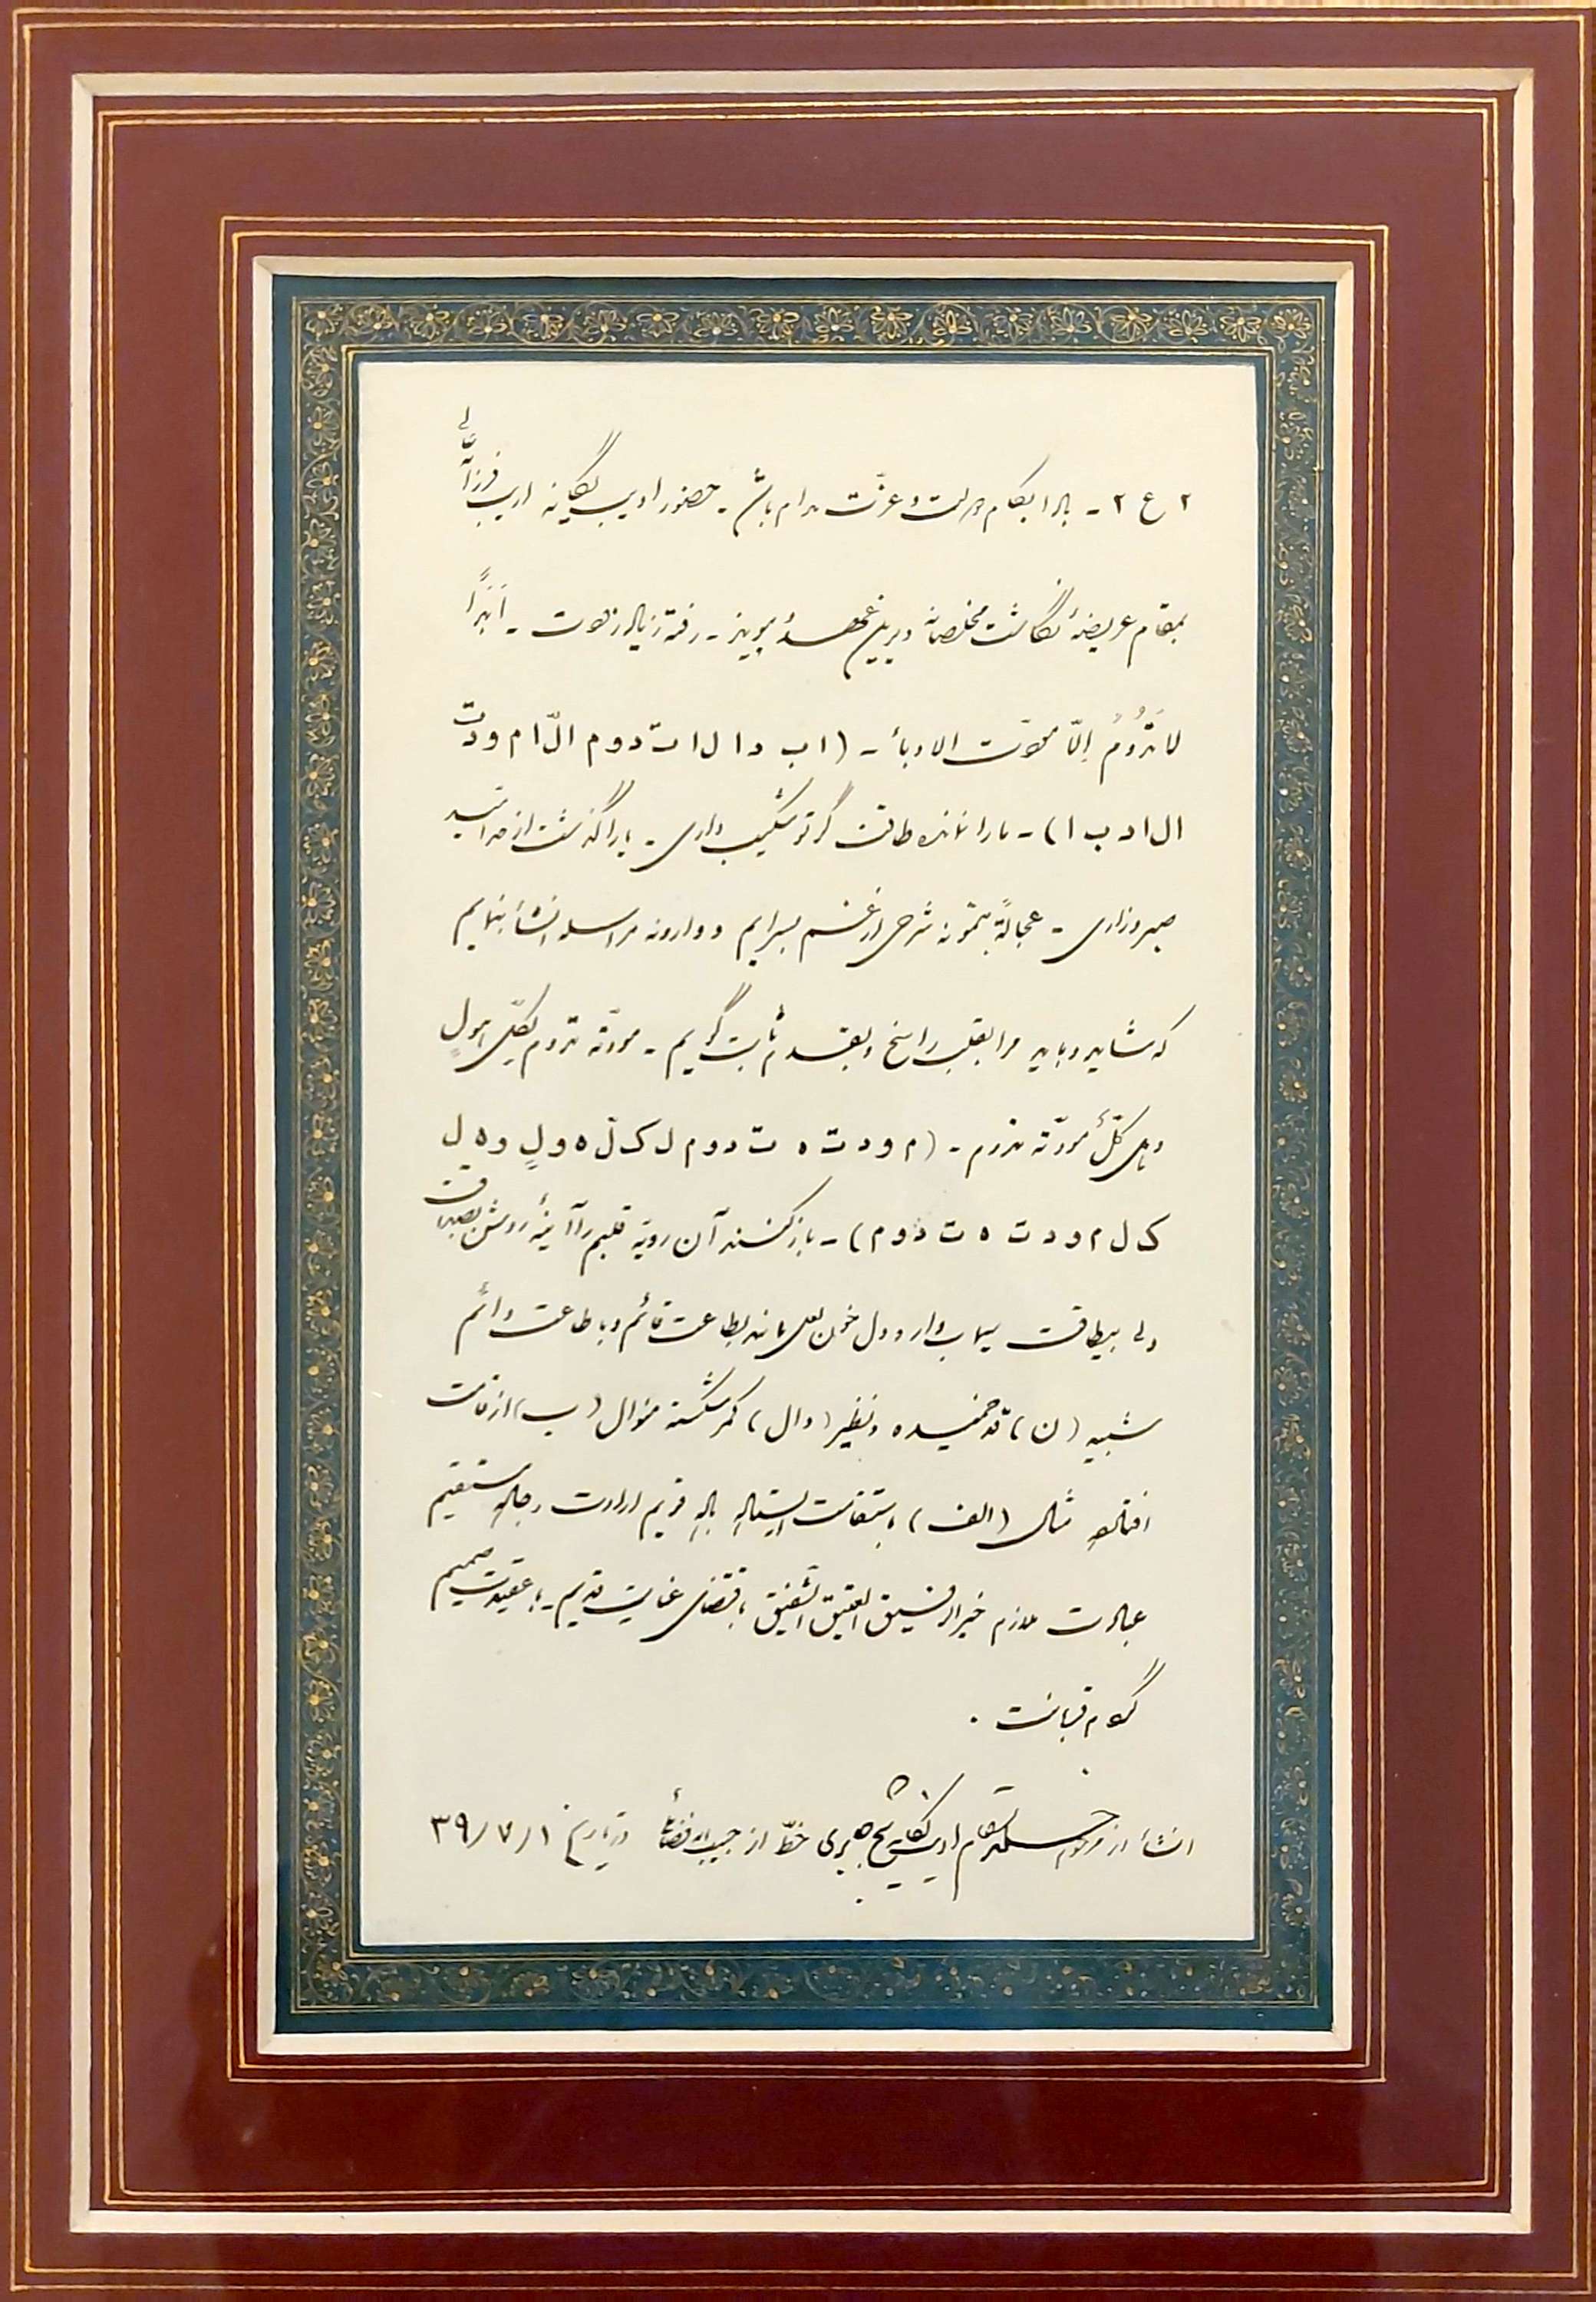 ۲ ع ۲ - بادا بکام دولت و عزّت مدام باش - حضور ادیب یگانه اریب فرزانه عالی
بمقام عریضهٔ نگاشت مخلصانه دیرین عهدهٔ - رفته ز یاد - اَبَداً
لا تَدُومُ اِلّا مودّت الادبأ - (ا ب د ا ل ا ت د و م ا ل ّا م و دّت
ا ل ا د ب ا) - ما را نمانده طاقت گر تو شکیب داری - یارا گذشت از حد
صبر و زاری - عجالةً بنمونه شرحی از غم بسرایم و وارونه مراسله انشأ بنمایم
که شاید و باید مرا بقلب راسخ و بقدم ثابت گویم - مودّته تدوم لکلّ هولٍ
و هل کلٌّ مودّته تدوم - (م و د ت ه ت د و م ل ک لّ ه و لٍ و ه ل
ک ل م و د ت ه ت د و م) - باز کنند آن رویهٔ قلبم را آئینهٔ روشن
ولی بیطاقت سیماب وار و دل خون لعل مانند بطاعت قائم و باطاعت دائم
شبیه (ن) قد خمیده و نظیر (دال) کمر شکسته منوال (ب) از قامت
افتاده مثال (الف) باستقامت ایستاده قدیم ارادت مستقیم
عبادت ملازم خیر الرفیق العتیق الشفیق باقتضای عنایت قدیم - با عقیدت صمیم
گویم قربانت .
انشأ از مرحوم ادیب خطّ از حبیب الله فضائلی در تاریخ ۳۹/۷/۱